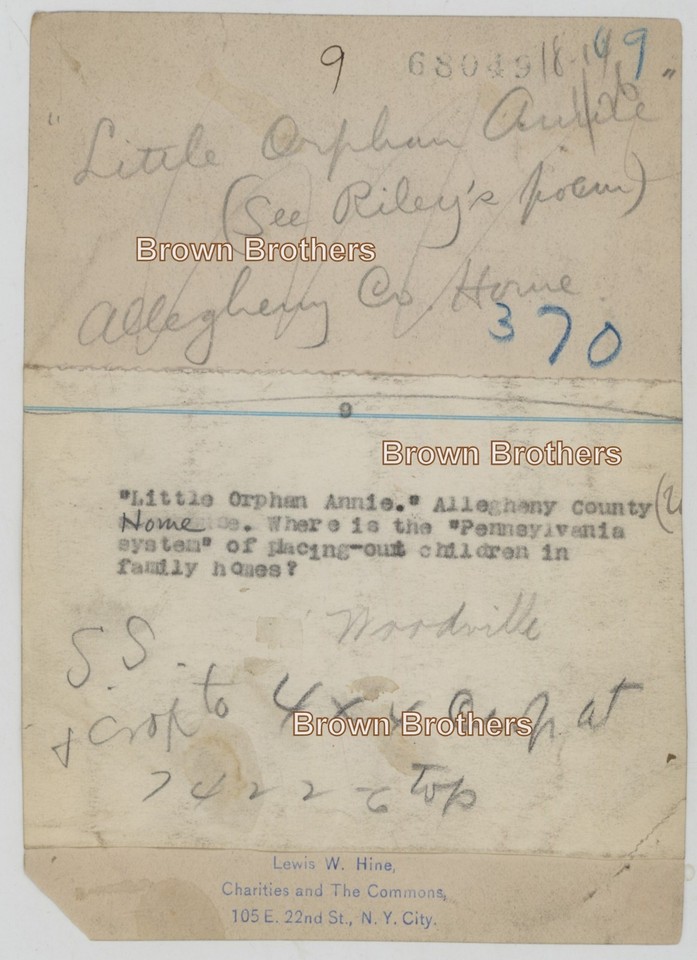 9 68049 18-149
"Little Orphan Annie"
(See Riley's poem)
Brown Brothers
Allegheny Co. Home
370
9
Brown Brothers
"Little Orphan Annie." Allegheny County
Home. Where is the "Pennsylvania
system" of placing-out children in
family homes?
Woodville
S.S.
& crop to 4 x 4 Crop at
Brown Brothers
top
Lewis W. Hine,
Charities and The Commons,
105 E. 22nd St., N. Y. City.